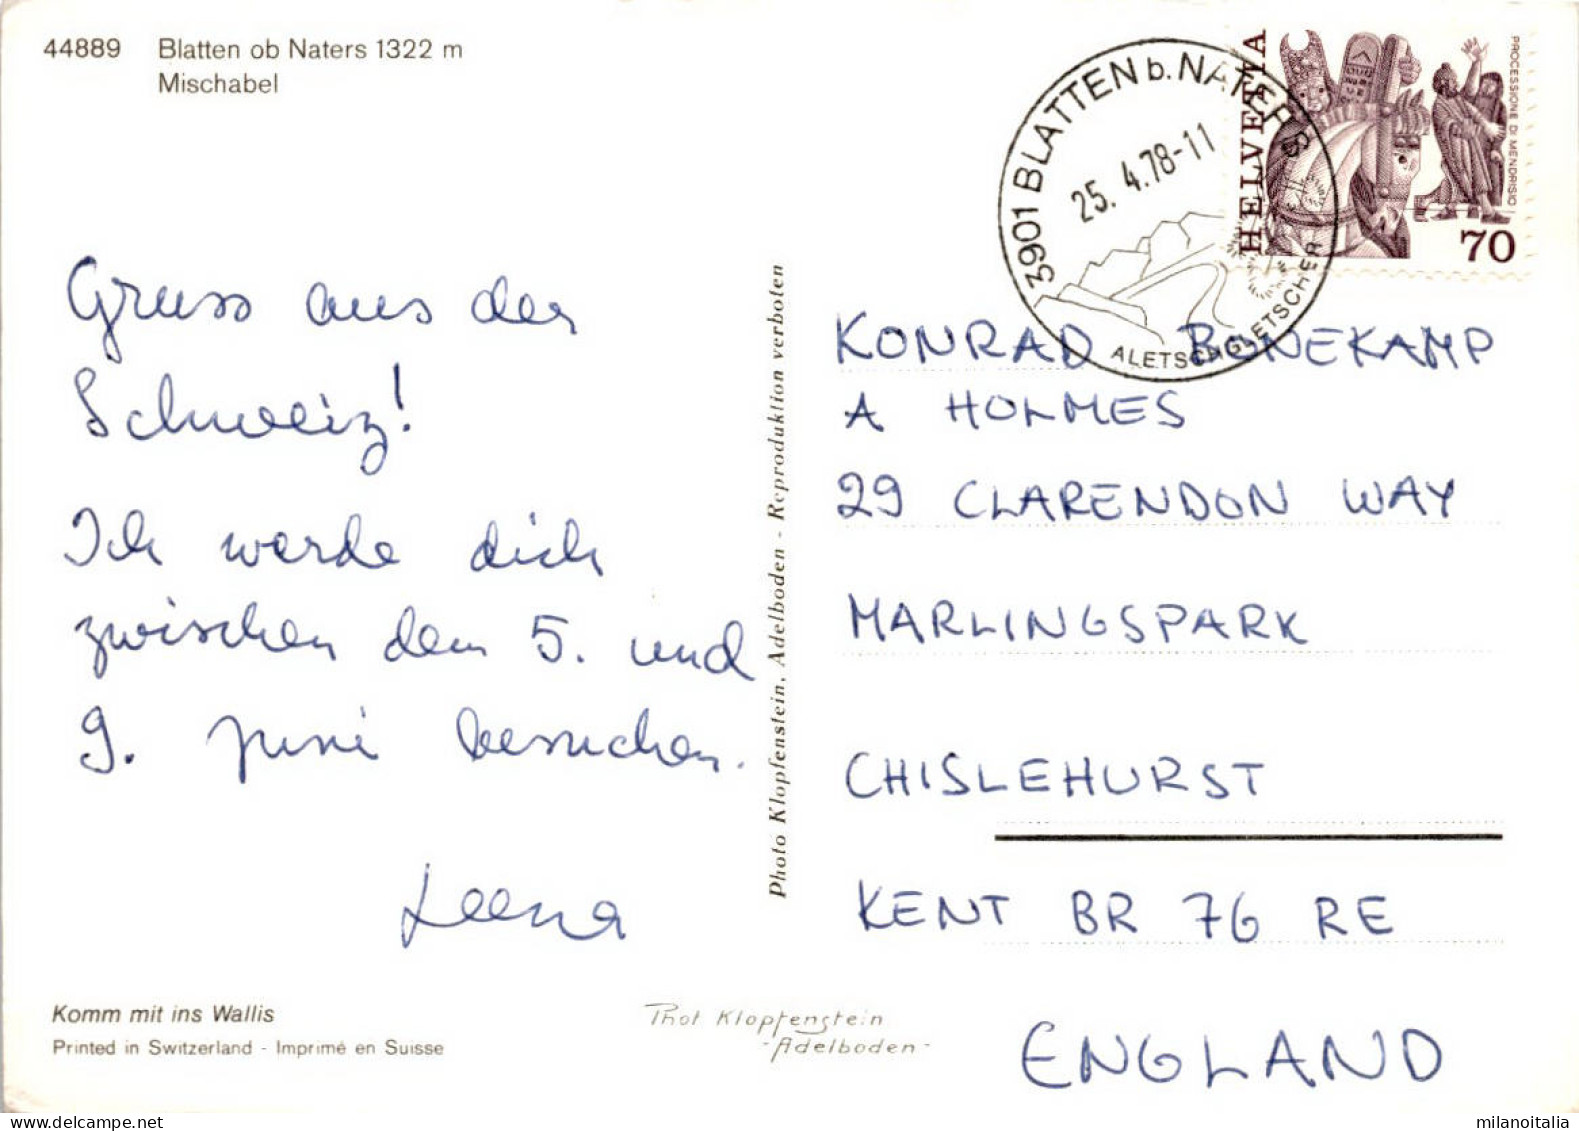 44889 Blatten ob Naters 1322 m
Mischabel
3901 BLATTEN b. NATERS
25. 4.78-11
ALETSCHGLETSCHER
HELVETIA
PROCESSIONE DI MENDRISIO
70
Gruss aus der
Schweiz!
Ich werde dich
zwischen dem 5. und
9. Juni besuchen.
Leena
Photo Klopfenstein, Adelboden - Reproduktion verboten
KONRAD BONEKAMP
A HOLMES
29 CLARENDON WAY
MARLINGSPARK
CHISLEHURST
KENT BR 76 RE
ENGLAND
Komm mit ins Wallis
Printed in Switzerland - Imprimé en Suisse
Phot Klopfenstein
- Adelboden -
milanoitalia